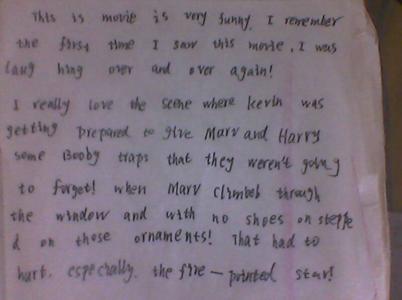 This is movie is very funny. I remember
the first time I saw this movie, I was
laug hing over and over again!
I really love the scene where kevin was
getting prepared to give Marv and Harry
some Booby traps that they weren't going
to forget! when Marv climbed through
the window and with no shoes on steppe
d on those ornaments! That had to
hurt. especially. the five - pointed star!